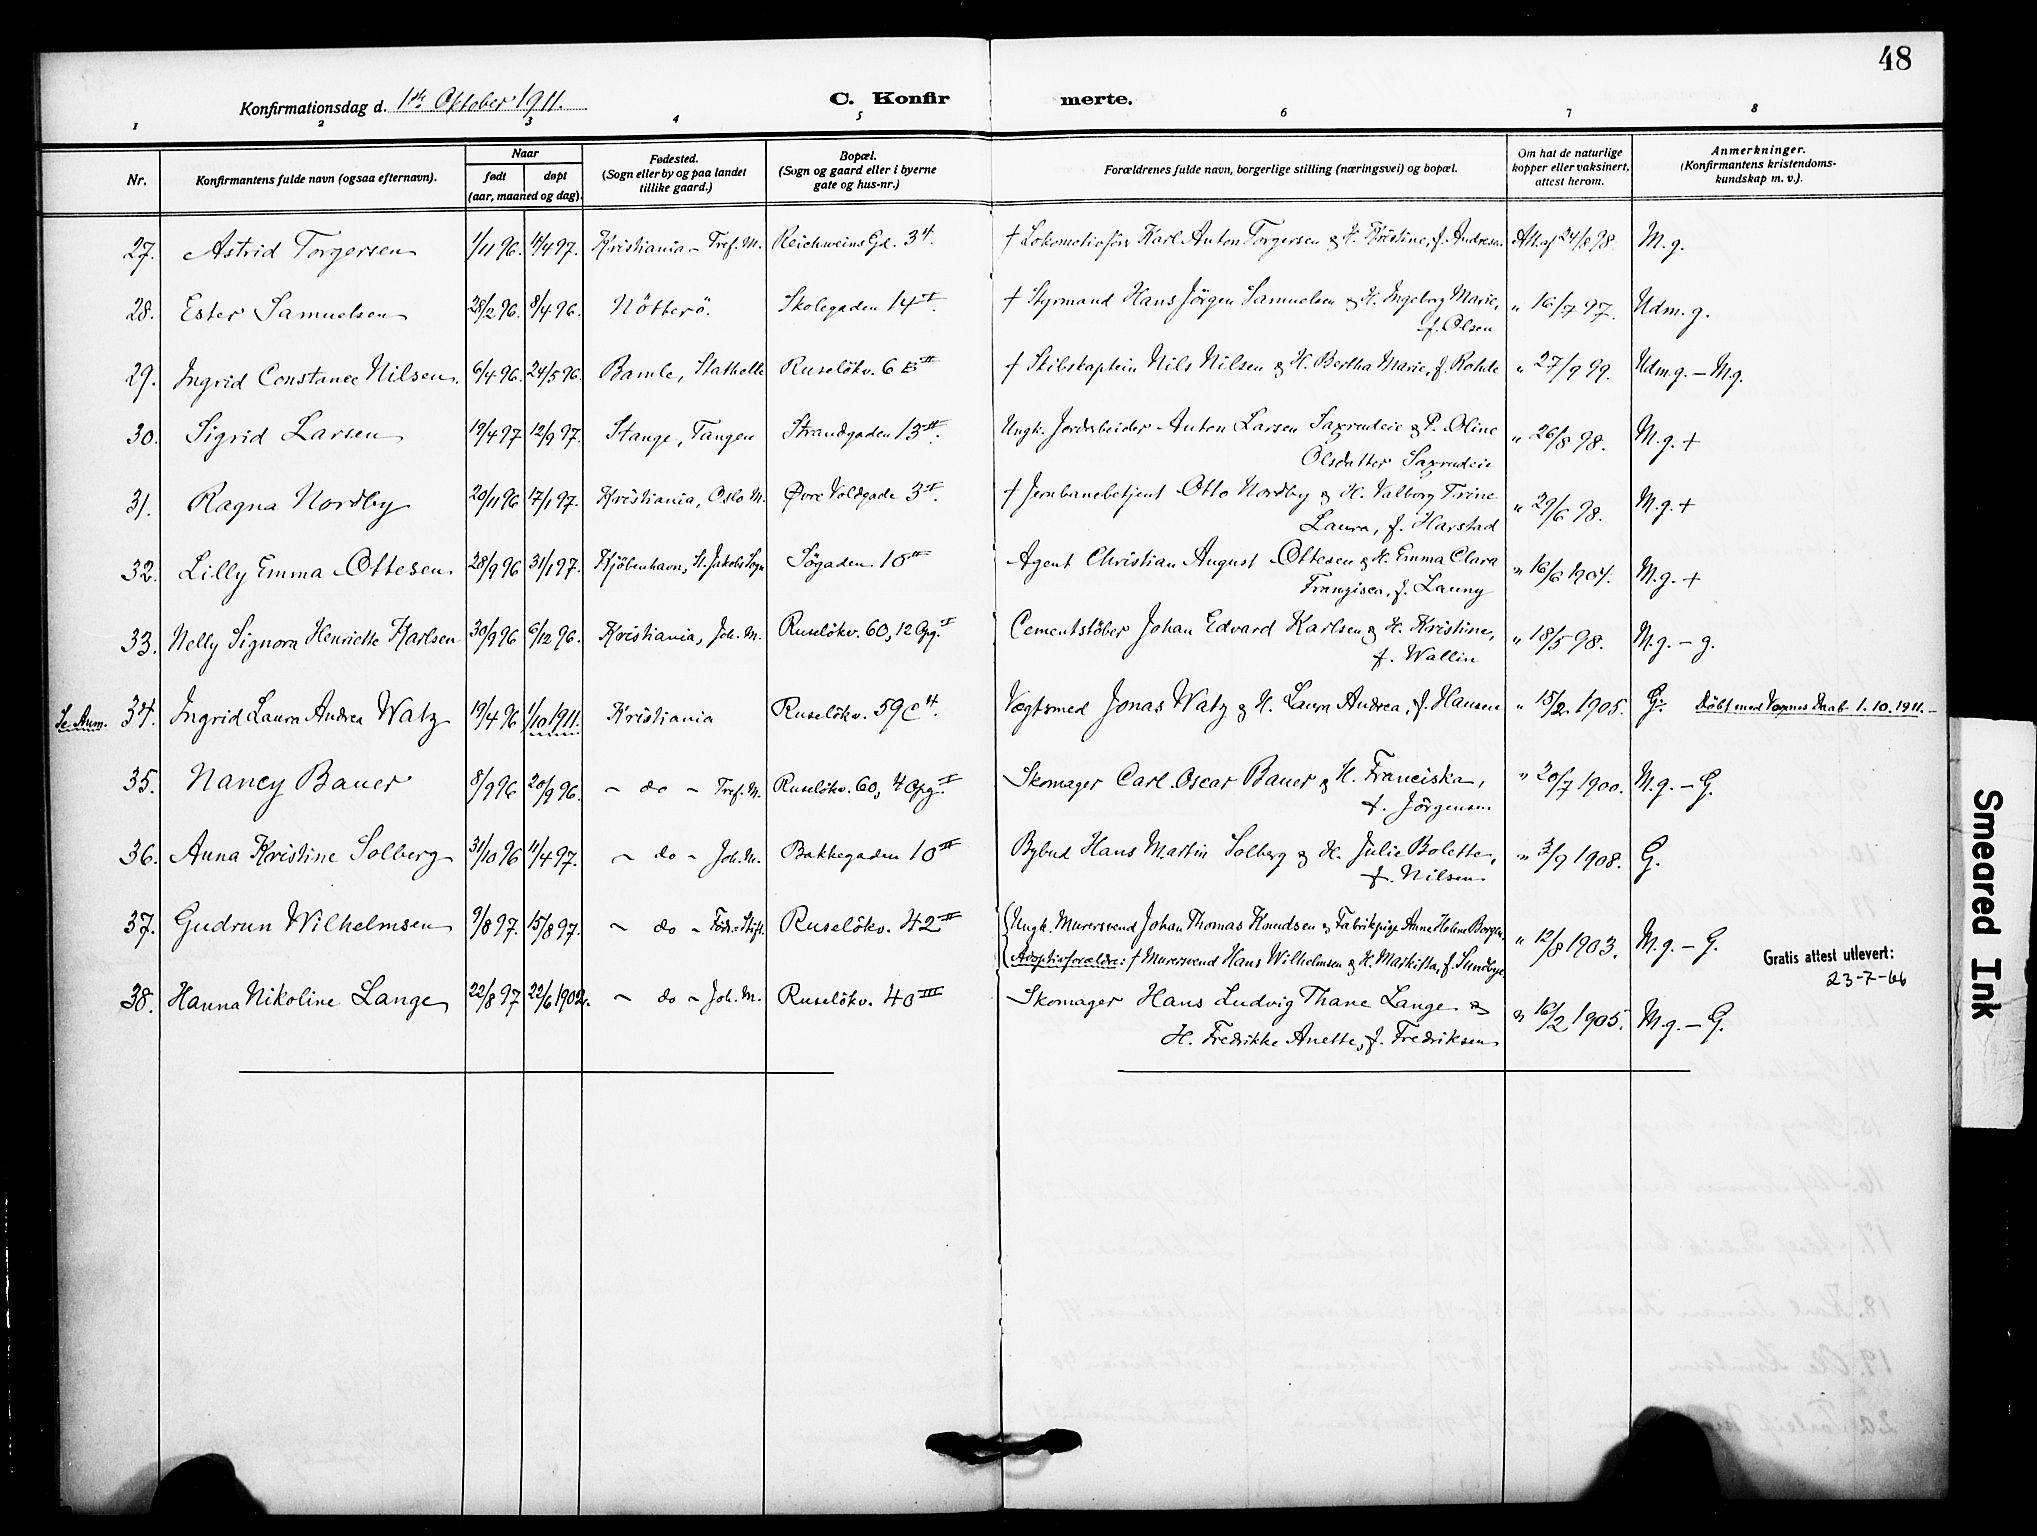 48
Konfirmationsdag d. 1ste Oktober 1911.
C. Konfir merte.
1 2 3 4 5 6 7 8
Nr.
Konfirmantens fulde navn (ogsaa efternavn).
Naar
født døpt
(aar, maaned og dag).
Fødested.
(Sogn eller by og paa landet
tillike gaard.)
Bopæl.
(Sogn og gaard eller i byerne
gate og hus-nr.)
Forældrenes fulde navn, borgerlige stilling (næringsvei) og bopæl.
Om hat de naturlige
kopper eller vaksinert,
attest herom.
Anmerkninger.
(Konfirmantens kristendoms-
kundskap m. v.).
27. Astrid Torgersen 1/11 96. 4/4 97. Kristiania - Tref. M. Reichweins Gd. 3 † Karl Anton Torgersen & H. Kristine, f. Andresen Att. af 24/8 98. M. g.
28. Ester Samuelsen 28/2 96. 8/4 96. Nötterö. Skolegaden 14 † Styrmand Hans Jörgen Samuelsen & H. Ingeborg Marie, " 16/7 97. Udm. g.
f. Olsen
29. Ingrid Constance Nilsen. 6/4 96. 24/5 96. Bamle, Stathelle Ruselökv. 6 B II † Skibskaptein Nils Nilsen & H. Bertha Marie, f. Rohde " 27/9 99. Udm. g. - M. g.
30. Sigrid Larsen 19/4 97 12/9 97. Stange, Tangen Strandgaden 13 Ungk. Jordarbeider Anton Larsen Saxrudeie & P. Oline " 26/8 98. M. g. +
Olsdatter Saxrudeie
31. Ragna Nordby 20/11 96 17/1 97. Kristiania, Oslo M. Øvre Voldgade 3 † Jernbanebetjent Otto Nordby & H. Valborg Trine " 29/6 98. M. g. +
Laura, f. Harstad
32. Lilly Emma Ottesen 28/9 96 31/1 97. Kjöbenhavn, St. Jakobs Sogn Sögaden 10 II Agent Christian August Ottesen & H. Emma Clara " 16/6 1904. M. g. +
Franzisca, f. Launy
33. Nelly Signora Henriette Karlsen 30/9 96 6/12 96. Kristiania, Joh. M. Ruselökv. 60, 12 Opg. I Cementstöber Johan Edvard Karlsen & H. Kristine, " 18/5 98. M. g. - g.
f. Wallin
Se Anm. 34. Ingrid Laura Andrea Watz 19/4 96 1/10 1911. Kristiania Ruselökv. 59 C 4. Vegtsmed Jonas Watz & H. Laura Andrea, f. Hansen " 15/2 1905. G. Döbt med Voxnes Daab 1.10.1911.
35. Nancy Bauer 8/9 96 20/9 96. - do - Tref. M. Ruselökv. 60, 4 Opg. I Skomager Carl Oscar Bauer & H. Franciska, " 20/7 1900. M. g. - G.
f. Jörgensen
36. Anna Kristine Solberg 31/10 96 11/4 97. - do - Joh. M. Bakkegaden 10 III Bybud Hans Martin Solberg & H. Julie Bolette, " 3/9 1908. G.
f. Nilsen
37. Gudrun Wilhelmsen 9/8 97. 15/8 97. - do - Föds. Stift. Ruselökv. 42 II Ungk. Murersvend Johan Thomas Knudsen & Fabrikpige Anne Helene Borgen. " 12/8 1903. M. g. - G.
Adoptivforældre: † Murersvend Hans Wilhelmsen & H. Mathilda, f. Sundbye
Gratis attest utlevert:
23-7-66
38. Hanna Nikoline Lange 22/8 97 22/6 1902. - do - Joh. M. Ruselökv. 40 III Skomager Hans Ludvig Thane Lange & " 16/2 1905. M. g. - G.
H. Fredrikke Anette, f. Fredriksen
Smeared Ink